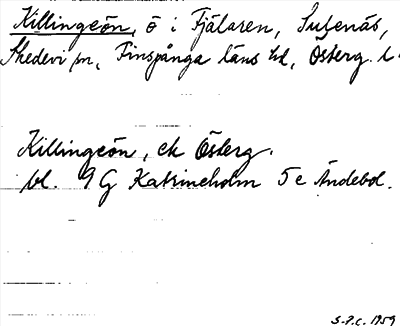 Killingeön, ö i Fjälaren, Sutenäs,
Skedevi sn, Finspånga läns hd, Österg. l.
Killingeön, ek Österg.
bl. 9 G Katrineholm 5 e Ändebol.
S.P.C. 1959